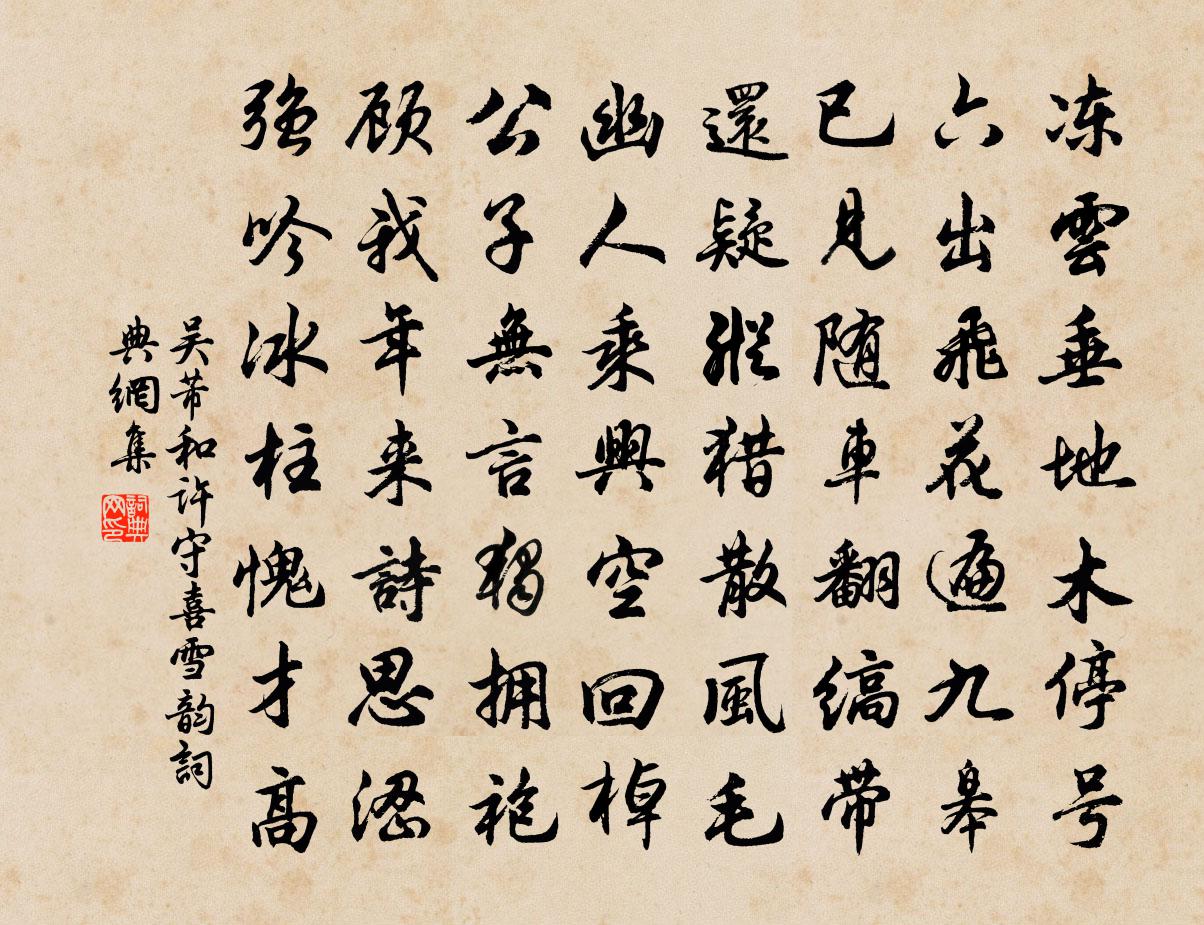 冻雲垂地木停号
六出飛花遍九皋
已見随車翻缟带
還疑縱猎散風毛
幽人乘興空回棹
公子無言獨拥袍
顾我年来詩思涩
強吟冰柱愧才高
吴芾和許守喜雪韵詞
典網集
詞典网印